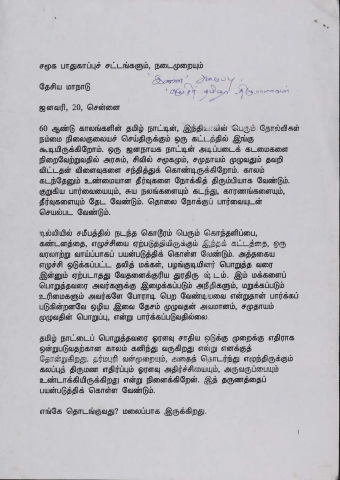 சமூக பாதுகாப்புச் சட்டங்களும், நடைமுறையும்
தேசிய மாநாடு
ஜனவரி, 20, சென்னை
60 ஆண்டு காலங்களின் தமிழ் நாட்டின், இந்தியாவின் பெரும் தோல்விகள்
நம்மை நிலைகுலையச் செய்திருக்கும் ஒரு கட்டத்தில் இங்கு
கூடியிருக்கிறோம். ஒரு ஜனநாயக நாட்டின் அடிப்படைக் கடமைகளை
நிறைவேற்றுவதில் அரசும், சிவில் சமூகமும், சமுதாயம் முழுவதும் தவறி
விட்டதன் விளைவுகளை சந்தித்துக் கொண்டிருக்கிறோம். காலம்
கடந்தேனும் உண்மையான தீர்வுகளை நோக்கித் திரும்பியாக வேண்டும்.
குறுகிய பார்வையையும், சுய நலங்களையும் கடந்து, காரணங்களையும்,
தீர்வுகளையும் தேட வேண்டும். தொலை நோக்குப் பார்வையுடன்
செயல்பட வேண்டும்.
டில்லியில் சமீபத்தில் நடந்த கொடூரம் பெரும் கொந்தளிப்பை,
கண்டனத்தை, எழுச்சியை ஏற்படுத்தியிருக்கும் இந்தக் கட்டத்தை, ஒரு
வரலாற்று வாய்ப்பாகப் பயன்படுத்திக் கொள்ள வேண்டும். அத்தகைய
எழுச்சி ஒடுக்கப்பட்ட தலித் மக்கள், பழங்குடியினர் பொறுத்த வரை
இன்னும் ஏற்படாதது வேதனைக்குரிய துரதிருஷ்டம். இம் மக்களைப்
பொறுத்தவரை அவர்களுக்கு இழைக்கப்படும் அநீதிகளும், மறுக்கப்படும்
உரிமைகளும் அவர்களே போராடிப் பெற வேண்டியவை என்றுதான் பார்க்கப்
படுகின்றனவே ஒழிய இவை தேசம் முழுவதன் அவமானம், சமுதாயம்
முழுவதின் பொறுப்பு, என்று பார்க்கப்படுவதில்லை.
தமிழ் நாட்டைப் பொறுத்தவரை ஓரளவு சாதிய ஒடுக்கு முறைக்கு எதிராக
ஒன்றுபடுவதற்கான காலம் கனிந்து வருகிறது என்று எனக்குத்
தோன்றுகிறது. தர்மபுரி வன்முறையும், அதைத் தொடர்ந்து எழுந்திருக்கும்
கலப்புத் திருமண எதிர்ப்பும் ஓரளவு அதிர்ச்சியையும், அருவருப்பையும்
உண்டாக்கியிருக்கிறது என்று நினைக்கிறேன். இத் தருணத்தைப்
பயன்படுத்திக் கொள்ள வேண்டும்.
எங்கே தொடங்குவது? மலைப்பாக இருக்கிறது.
1